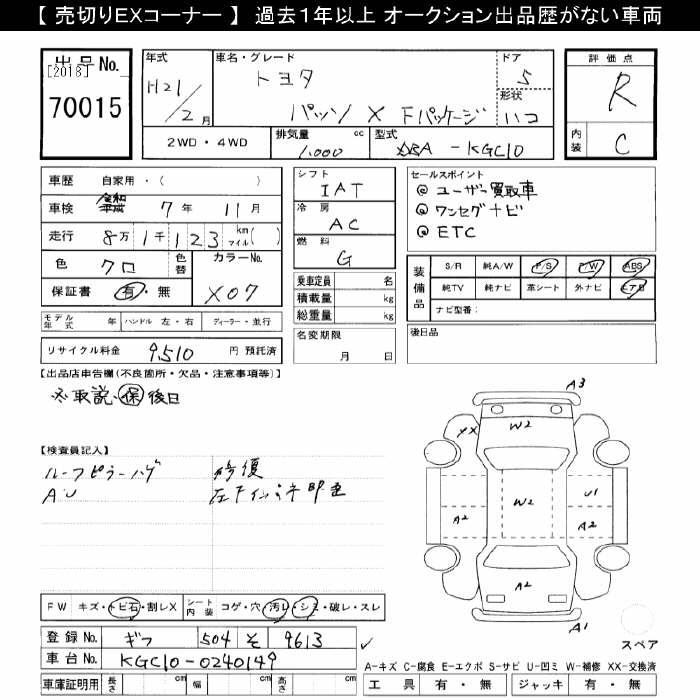 【 売切りEXコーナー 】 過去１年以上 オークション出品歴がない車両
出品No.
[2018]
70015
年式
H21/2月
車名・グレード
トヨタ
パッソ X Fパッケージ
ドア
5
形状
ハコ
評価点
R
内装
C
2WD・4WD
排気量
1,000 cc
型式
DBA-KGC10
車歴 自家用・( )
車検 令和 7年 11月
走行 8万 1千 123 km マイル( )
色 クロ
色替
カラーNo.
X07
保証書 有・無
シフト
IAT
冷房
AC
燃料
G
乗車定員 名
積載量 kg
総重量 kg
セールスポイント
@ ユーザー買取車
@ ワンセグナビ
@ ETC
装備品
S/R 純A/W P/S P/W ABS
純TV 純ナビ 革シート 外ナビ エアB
ナビ型番:
モデル年式 年 ハンドル 左・右 ディーラー・並行
リサイクル料金 9,510 円 預託済
名変期限
月 日
後日品
【出品店申告欄(不良箇所・欠品・注意事項等)】
※取説・保後日
【検査員記入】
ルーフピラーハゲ
AU
修復
A3
XX
W2
W2
U1
A2
A2
A2
A1
スペア
FW キズ・トビ石・割レX
シート内装 コゲ・穴・汚レ・シミ・破レ・スレ
登録No. ギフ 504 そ 9613
車台No. KGC10-0240149
車庫証明用 長さ cm 幅 cm 高さ cm
A-キズ C-腐食 E-エクボ S-サビ U-凹ミ W-補修 XX-交換済
工具 有・無 ジャッキ 有・無